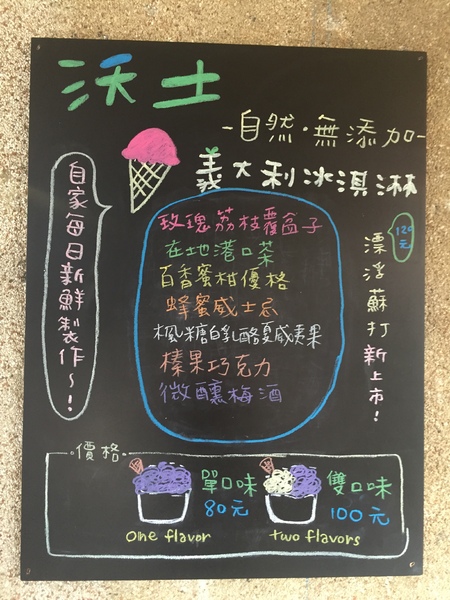 沃土
-自然·無添加-
義大利冰淇淋
自家每日新鮮製作~!
玫瑰荔枝覆盆子
在地港口茶
百香蜜柑優格
蜂蜜威士忌
楓糖白乳酪夏威夷果
榛果巧克力
微醺梅酒
漂浮蘇打新上市!
120元
·價格·
單口味
80元
one flavor
雙口味
100元
two flavors